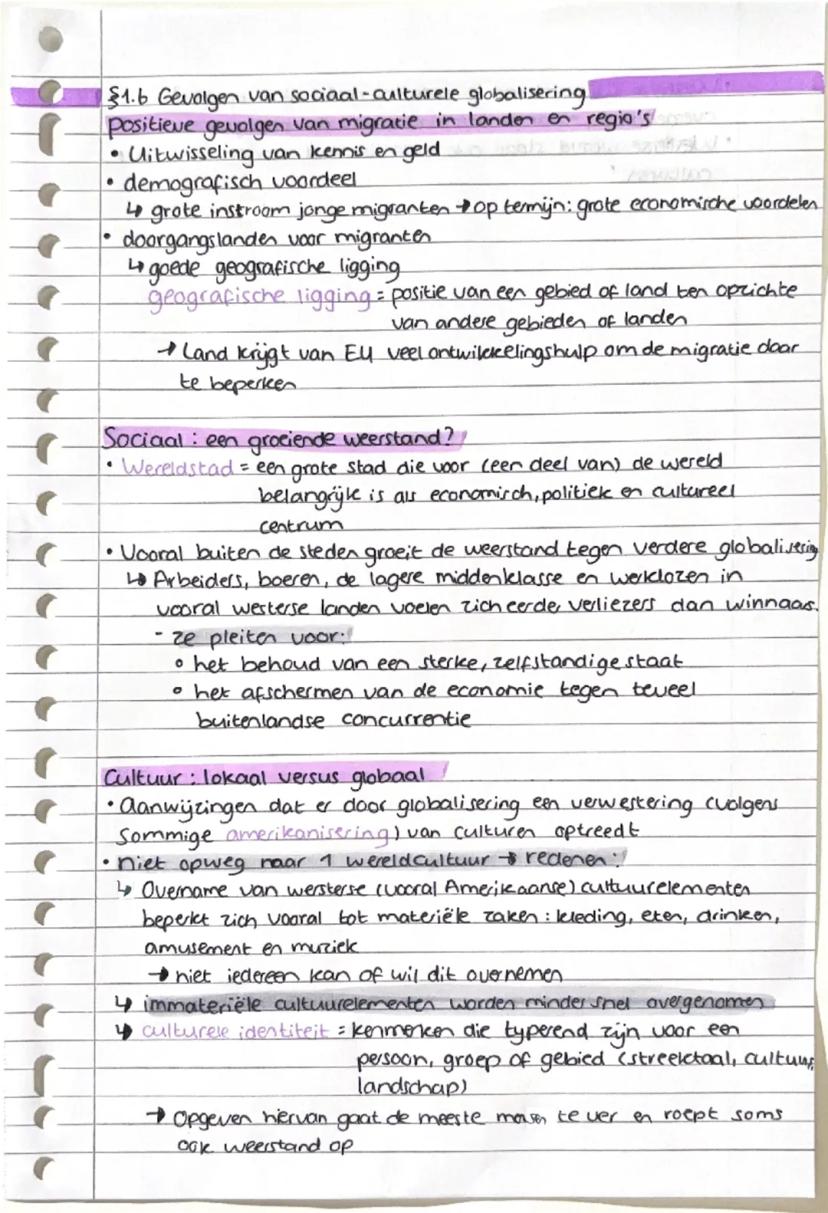 §1.6 Gevolgen van sociaal-culturele globalisering
positieve gevolgen van migratie in landen en regio's
• Uitwisseling van kennis en geld
• demografisch voordeel
↳ grote instroom jonge migranten → op termijn: grote economische voordelen
• doorgangslanden voor migranten
↳ goede geografische ligging
geografische ligging = positie van een gebied of land ten opzichte
van andere gebieden of landen
→ Land krijgt van EU veel ontwikkelingshulp om de migratie daar
te beperken
Sociaal : een groeiende weerstand?
• Wereldstad = een grote stad die voor (een deel van) de wereld
belangrijk is als economisch, politiek en cultureel
centrum
• Vooral buiten de steden groeit de weerstand tegen verdere globalisering
↳ Arbeiders, boeren, de lagere middenklasse en werklozen in
vooral westerse landen voelen zich eerder verliezers dan winnaas.
- ze pleiten voor:
○ het behoud van een sterke, zelfstandige staat
○ het afschermen van de economie tegen teveel
buitenlandse concurrentie
Cultuur : lokaal versus globaal
• Aanwijzingen dat er door globalisering een verwestering (volgens
Sommige amerikanisering) van culturen optreedt
• niet opweg naar 1 wereldcultuur → redenen:
↳ Overname van wersterse (vooral Amerikaanse) cultuurelementen
beperkt zich vooral tot materiële zaken : kleding, eten, drinken,
amusement en muziek
→ niet iedereen kan of wil dit overnemen
↳ immateriële cultuurelementen worden minder snel overgenomen
↳ culturele identiteit = kenmerken die typerend zijn voor een
persoon, groep of gebied (streektaal, cultuur,
landschap)
→ Opgeven hiervan gaat de meeste mensen te ver en roept soms
ook weerstand op